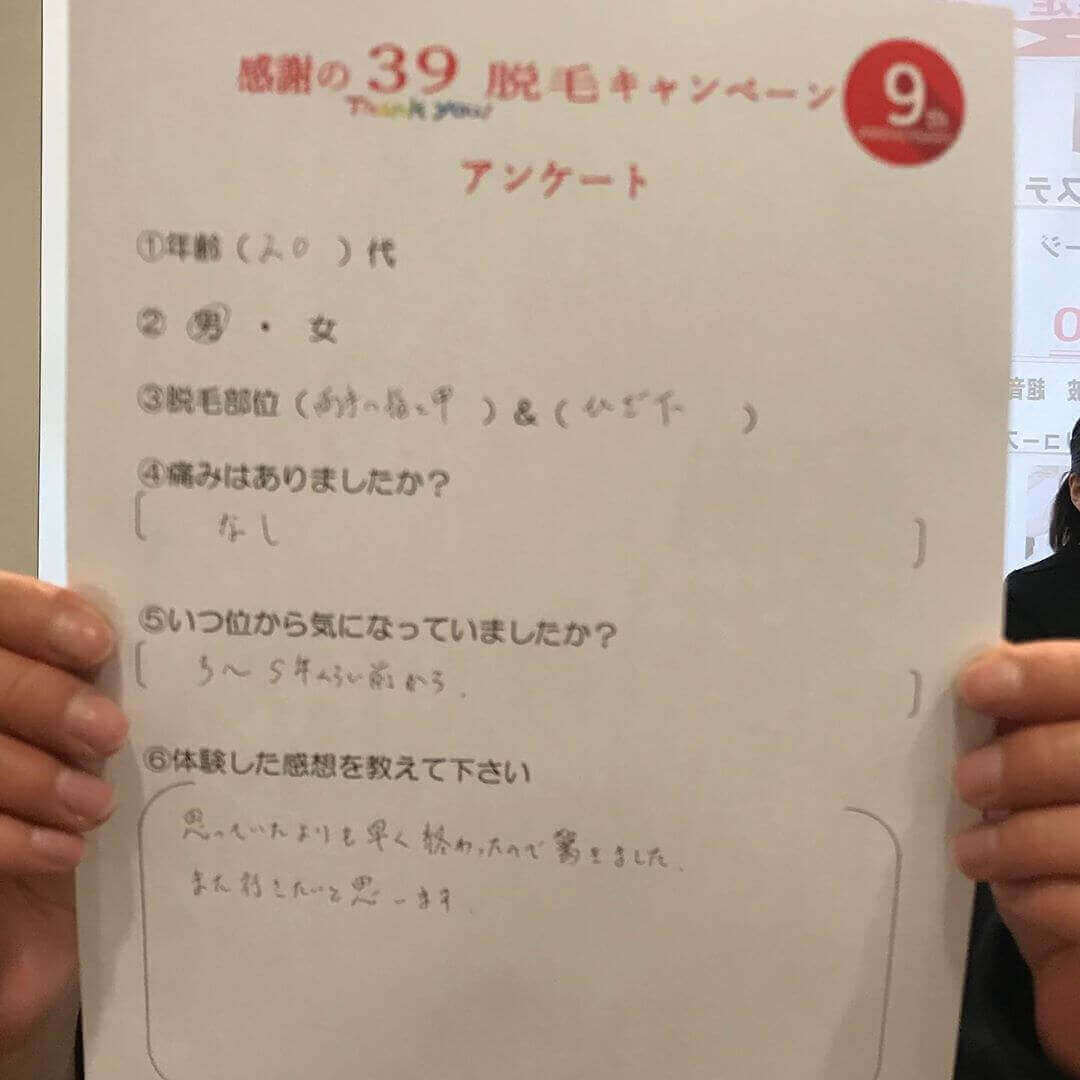 感謝の39脱毛キャンペーン
Thank you!
9th
アンケート
①年齢(20)代
② 男・女
③脱毛部位(両方の指と甲)&(ひざ下)
④痛みはありましたか?
なし
⑤いつ位から気になっていましたか?
5年くらい前から.
⑥体験した感想を教えて下さい
思っていたよりも早く終わったので驚きました.
また行きたいと思います.
ステ
ージ